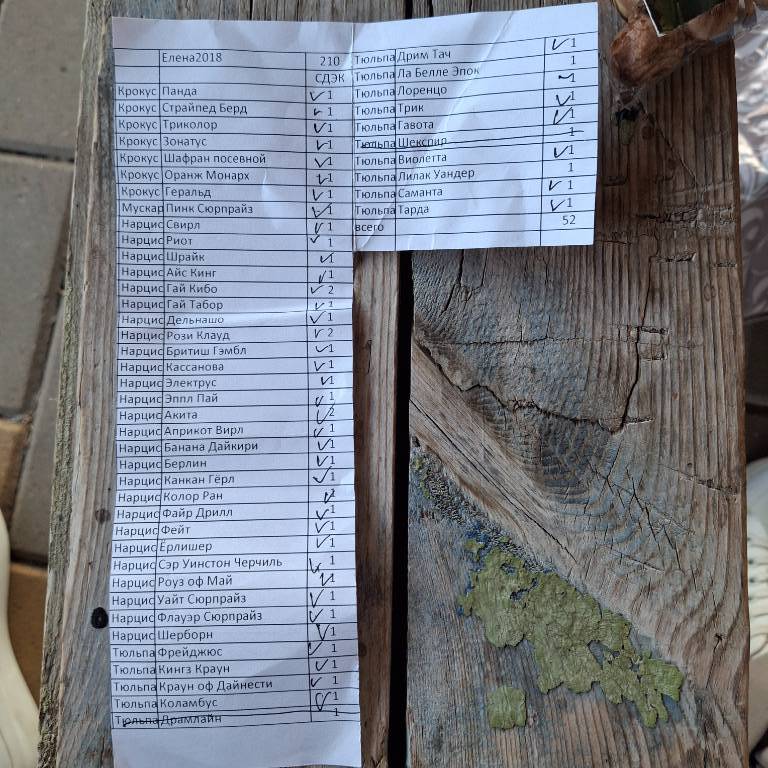 Елена2018 210
СДЭК
Крокус Панда 1
Крокус Страйпед Берд 1
Крокус Триколор 1
Крокус Зонатус 1
Крокус Шафран посевной 1
Крокус Оранж Монарх 1
Крокус Геральд 1
Мускар Пинк Сюрпрайз 1
Нарцис Свирл 1
Нарцис Риот 1
Нарцис Шрайк 1
Нарцис Айс Кинг 1
Нарцис Гай Кибо 2
Нарцис Гай Табор 1
Нарцис Дельнашо 1
Нарцис Рози Клауд 2
Нарцис Бритиш Гэмбл 1
Нарцис Кассанова 1
Нарцис Электрус 1
Нарцис Эппл Пай 1
Нарцис Акита 2
Нарцис Априкот Вирл 1
Нарцис Банана Дайкири 1
Нарцис Берлин 1
Нарцис Канкан Гёрл 1
Нарцис Колор Ран
Нарцис Файр Дрилл 1
Нарцис Фейт 1
Нарцис Ёрлишер 1
Нарцис Сэр Уинстон Черчиль 1
Нарцис Роуз оф Май 1
Нарцис Уайт Сюрпрайз 1
Нарцис Флауэр Сюрпрайз 1
Нарцис Шерборн 1
Тюльпа Фрейджюс 1
Тюльпа Кингз Краун 1
Тюльпа Краун оф Дайнести 1
Тюльпа Коламбус 1
Тюльпа Драмлайн 1
Тюльпа Дрим Тач 1
Тюльпа Ла Белле Эпок 1
Тюльпа Лоренцо 1
Тюльпа Трик 1
Тюльпа Гавота 1
Тюльпа Шекспир 1
Тюльпа Виолетта 1
Тюльпа Лилак Уандер 1
Тюльпа Саманта 1
Тюльпа Тарда 1
всего 52